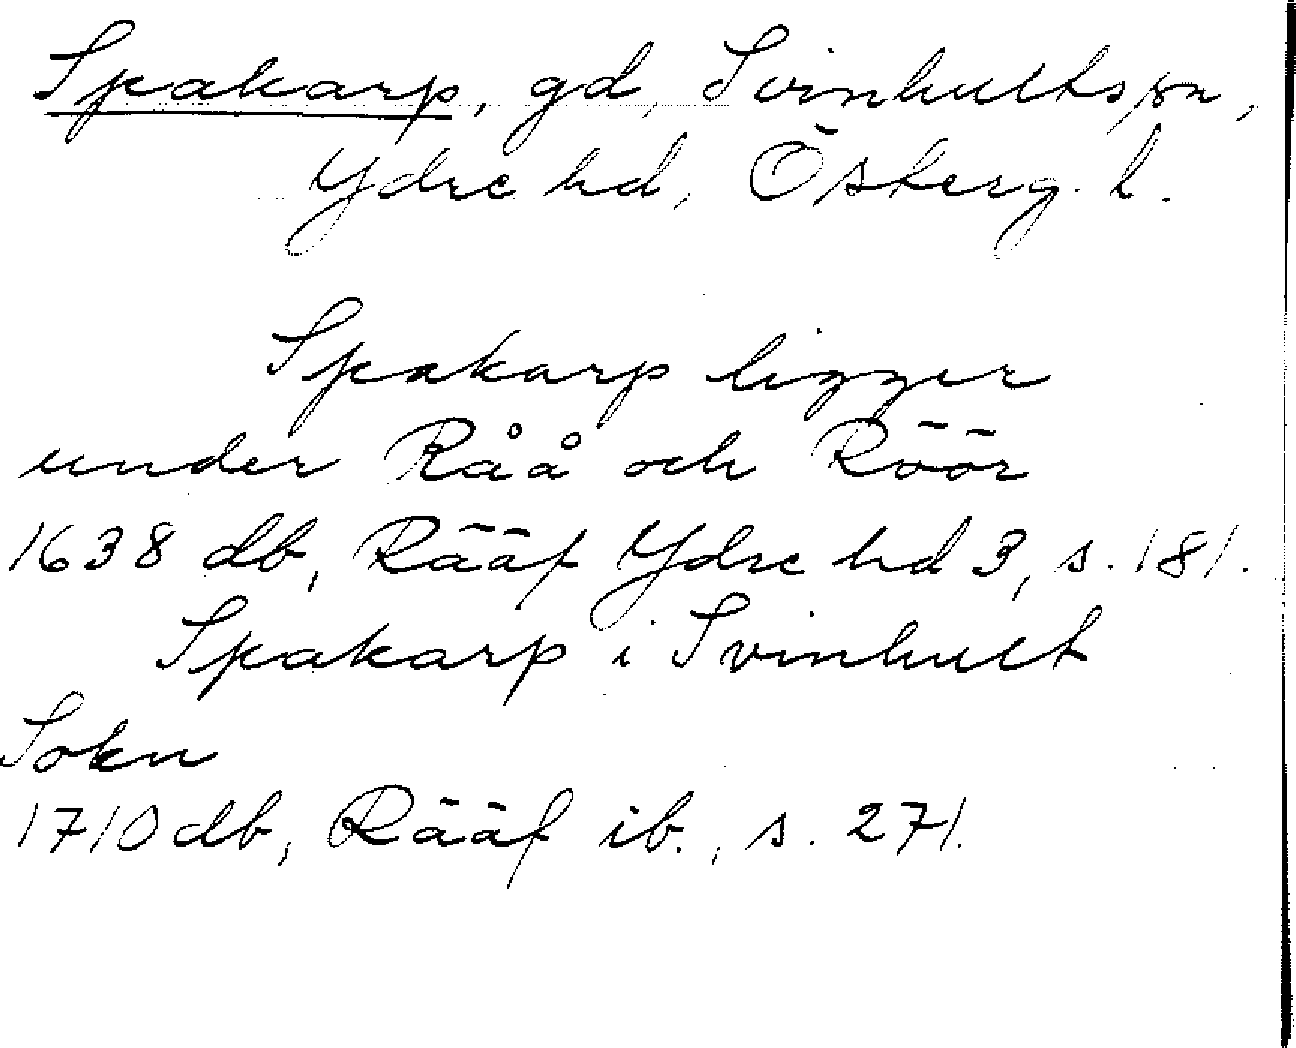 Spakarp, gd, Svinhults sn,
Ydre hd, Österg. l.
Spakarp ligger
under Råå och Röör
1638 db, Rääf Ydre hd 3, s. 181.
Spakarp i Svinhult
Sokn
1710 db, Rääf ib., s. 271.